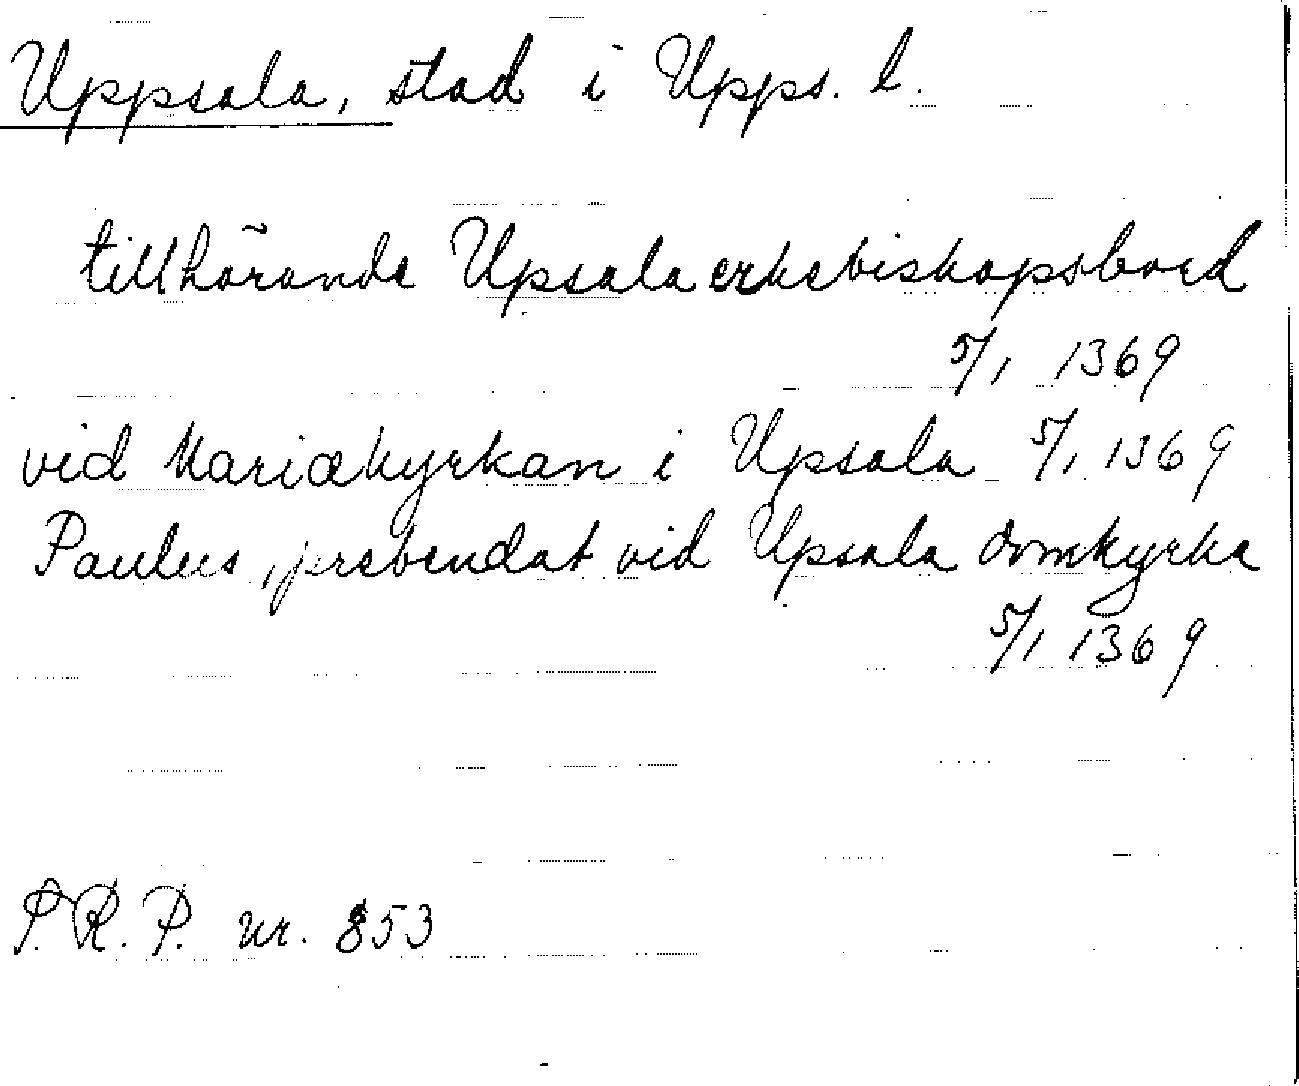 Uppsala, stad i Upps. l.
tillhörande Upsala erkebiskopsbord
5/1 1369
vid Mariakyrkan i Upsala 5/1 1369
Paulus, prebendat vid Upsala domkyrka
5/1 1369
S.R.P. nr. 853